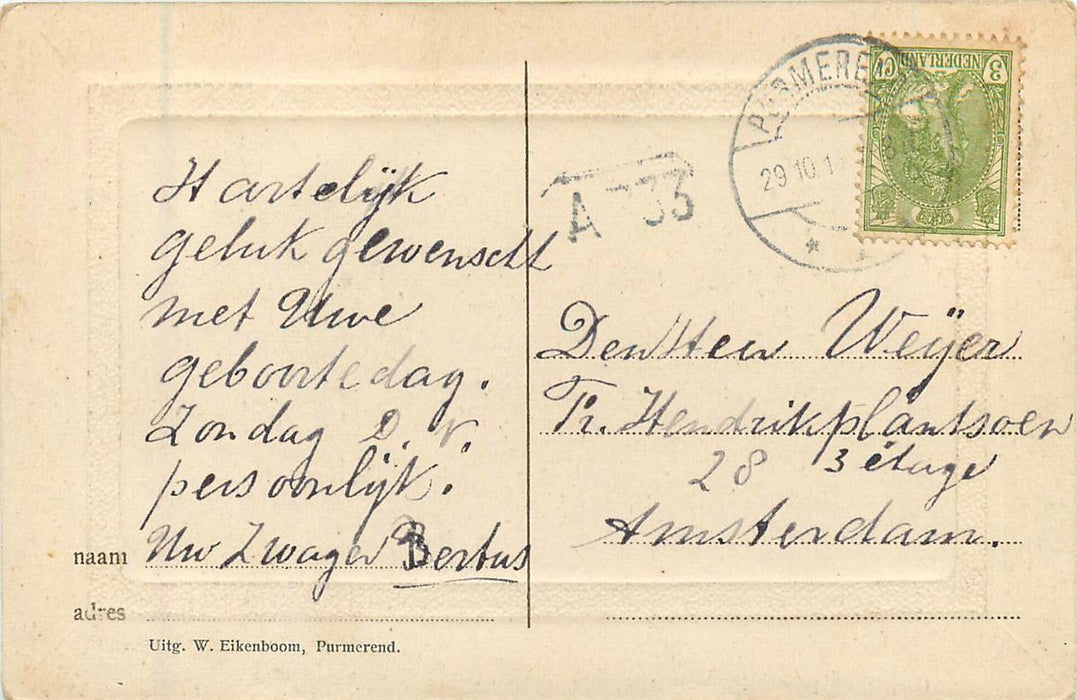 Hartelijk
geluk gewenscht
met Uwe
geboortedag.
Zondag D. V.
persoonlijk.
naam Uw Zwager Bertus
adres
Uitg. W. Eikenboom, Purmerend.
PURMERE
29.10.1
A 33
3 NEDERLAND Ct
Den Heer Weijer
Pr. Hendrikplantsoen
28 3 étage
Amsterdam.